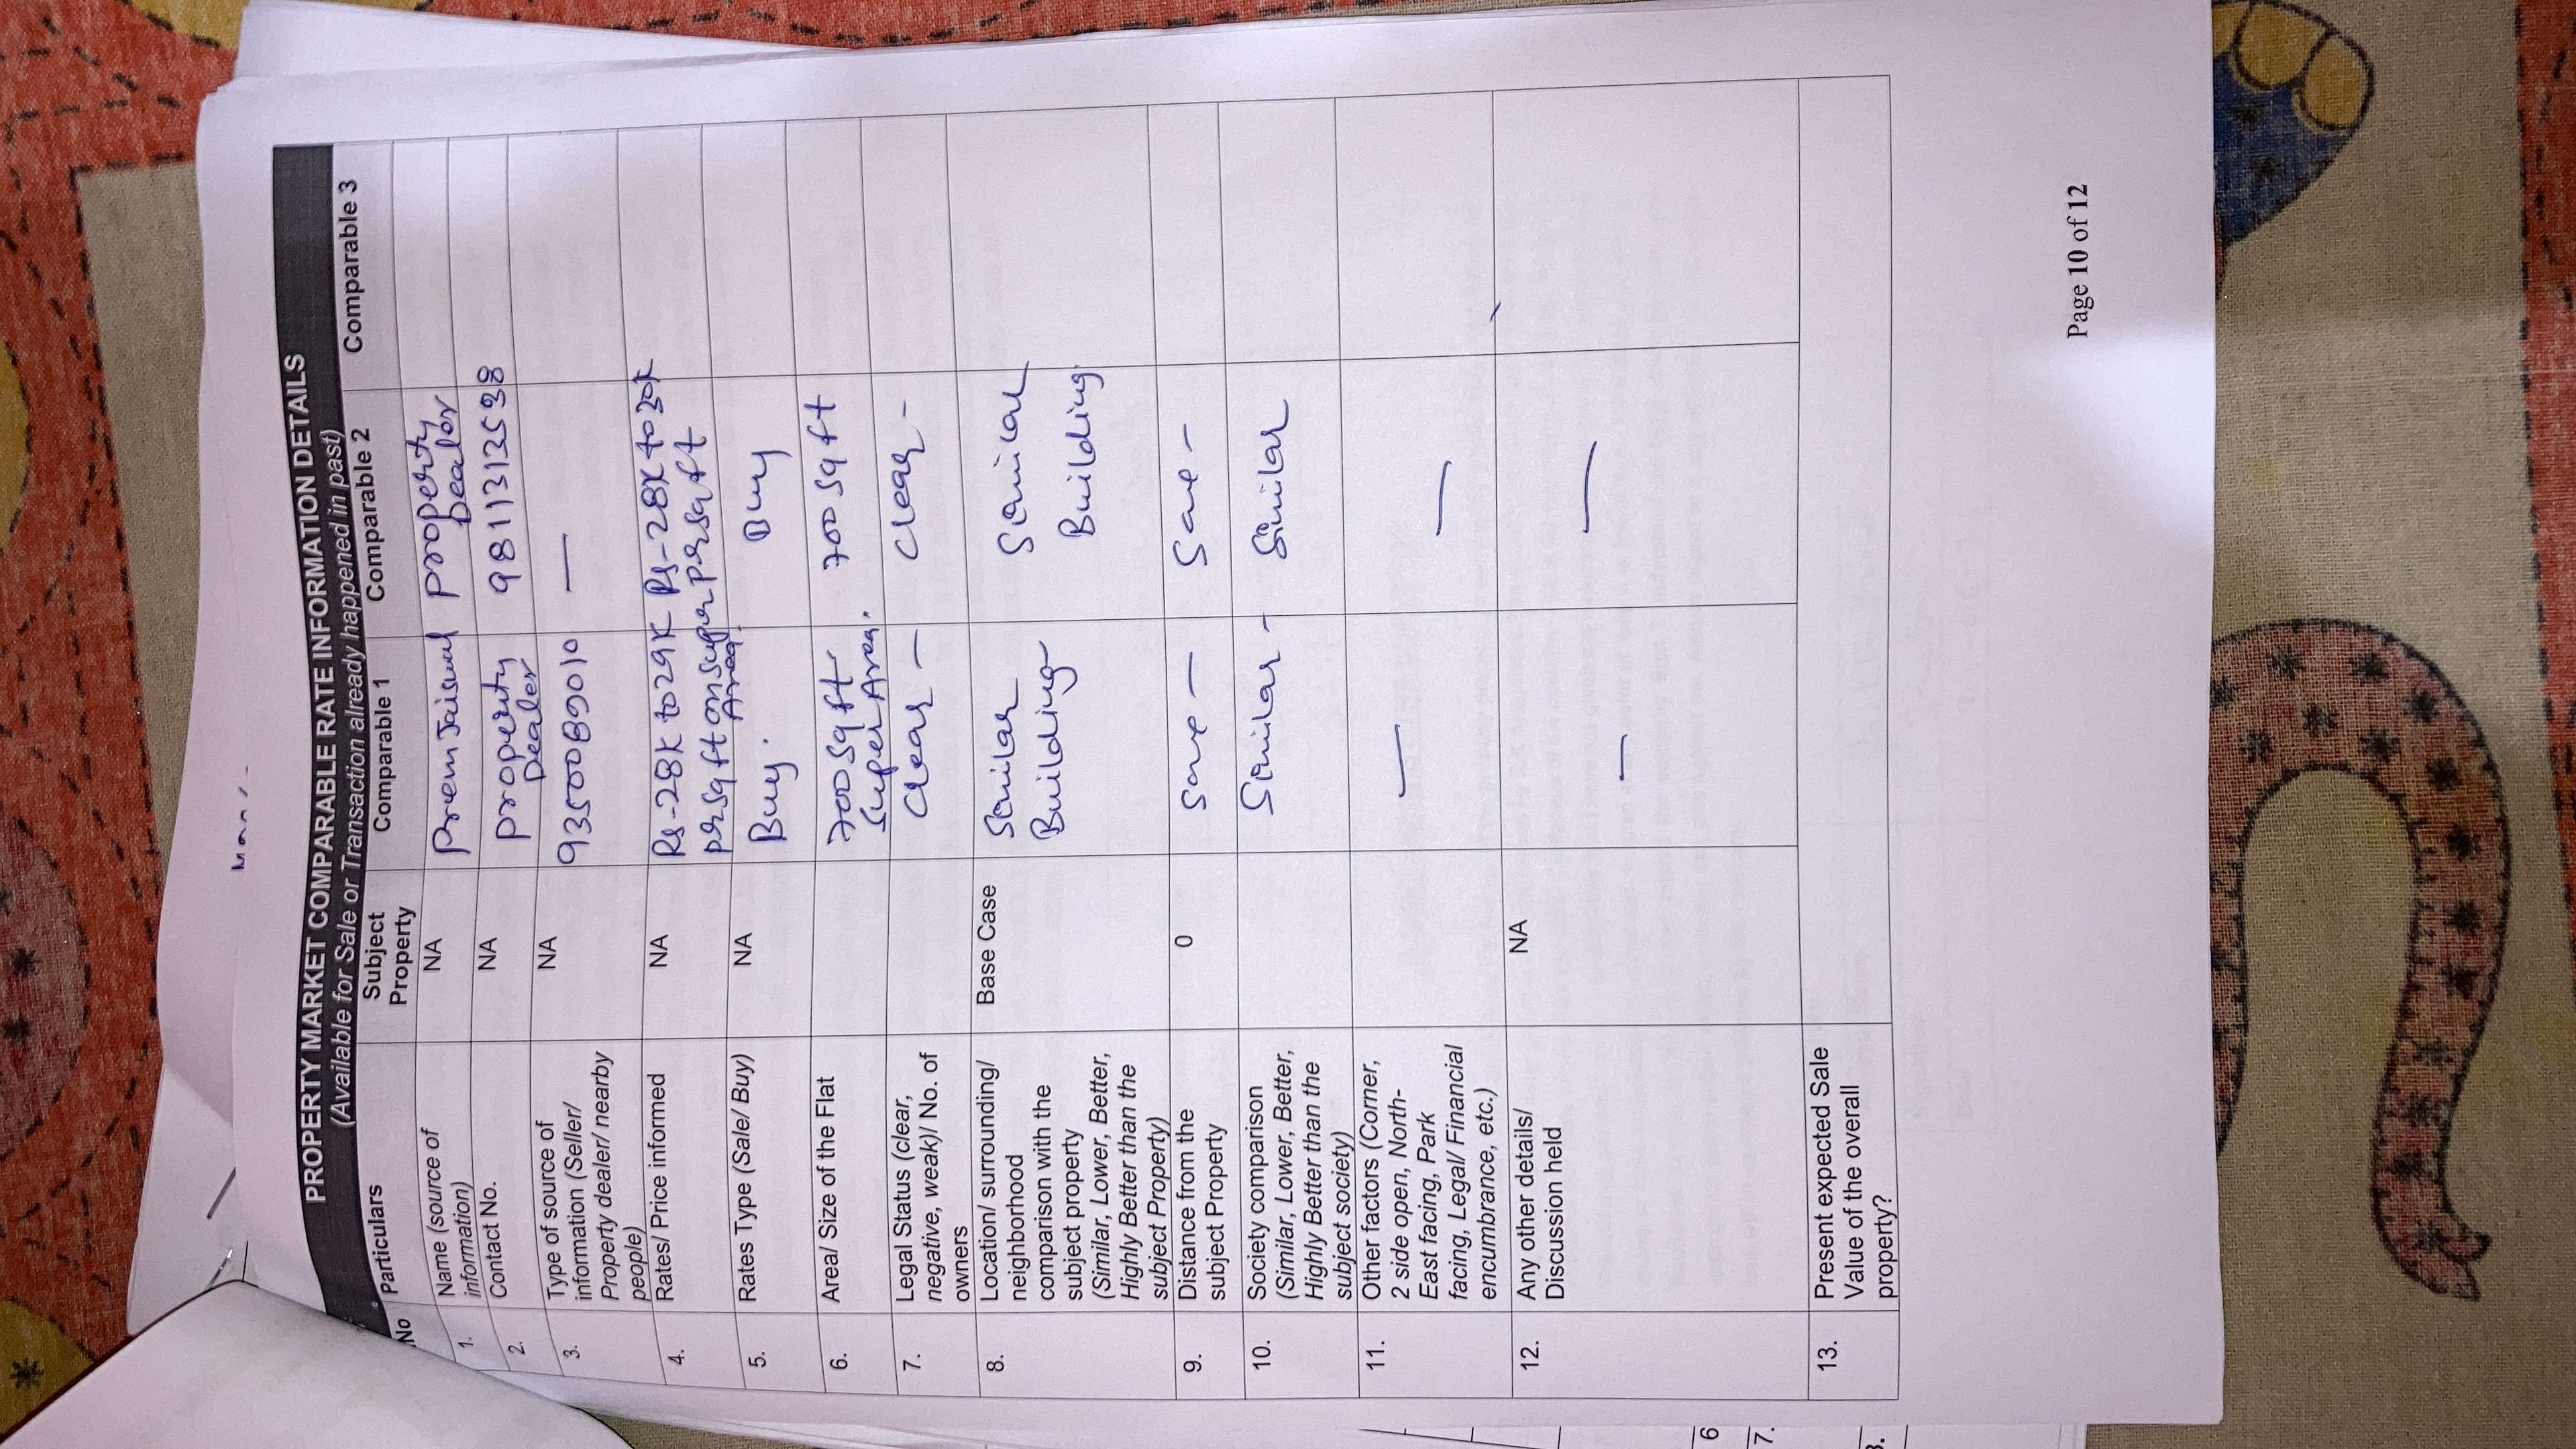 PROPERTY MARKET COMPARABLE RATE INFORMATION DETAILS
(Available for Sale or Transaction already happened in past)
No Particulars Subject Property Comparable 1 Comparable 2 Comparable 3
1. Name (source of information) NA Prem Jaiswal Property Dealer
2. Contact No. NA Property Dealer 9811313538
3. Type of source of information (Seller/ Property dealer/ nearby people) NA 9350089010 —
4. Rates/ Price informed NA Rs-28K to 29K per sq ft on super Area. Rs-28K to 30K per sq ft
5. Rates Type (Sale/ Buy) NA Buy. Buy
6. Area/ Size of the Flat 700 sq ft Super Area. 700 sq ft
7. Legal Status (clear, negative, weak)/ No. of owners Clear — Clear -
8. Location/ surrounding/ neighborhood comparison with the subject property (Similar, Lower, Better, Highly Better than the subject Property) Base Case Similar Building Similar Building
9. Distance from the subject Property 0 Same — Same -
10. Society comparison (Similar, Lower, Better, Highly Better than the subject society) Similar - Similar
11. Other factors (Corner, 2 side open, North-East facing, Park facing, Legal/ Financial encumbrance, etc.) — —
12. Any other details/ Discussion held NA — —
13. Present expected Sale Value of the overall property?
Page 10 of 12
6
7.